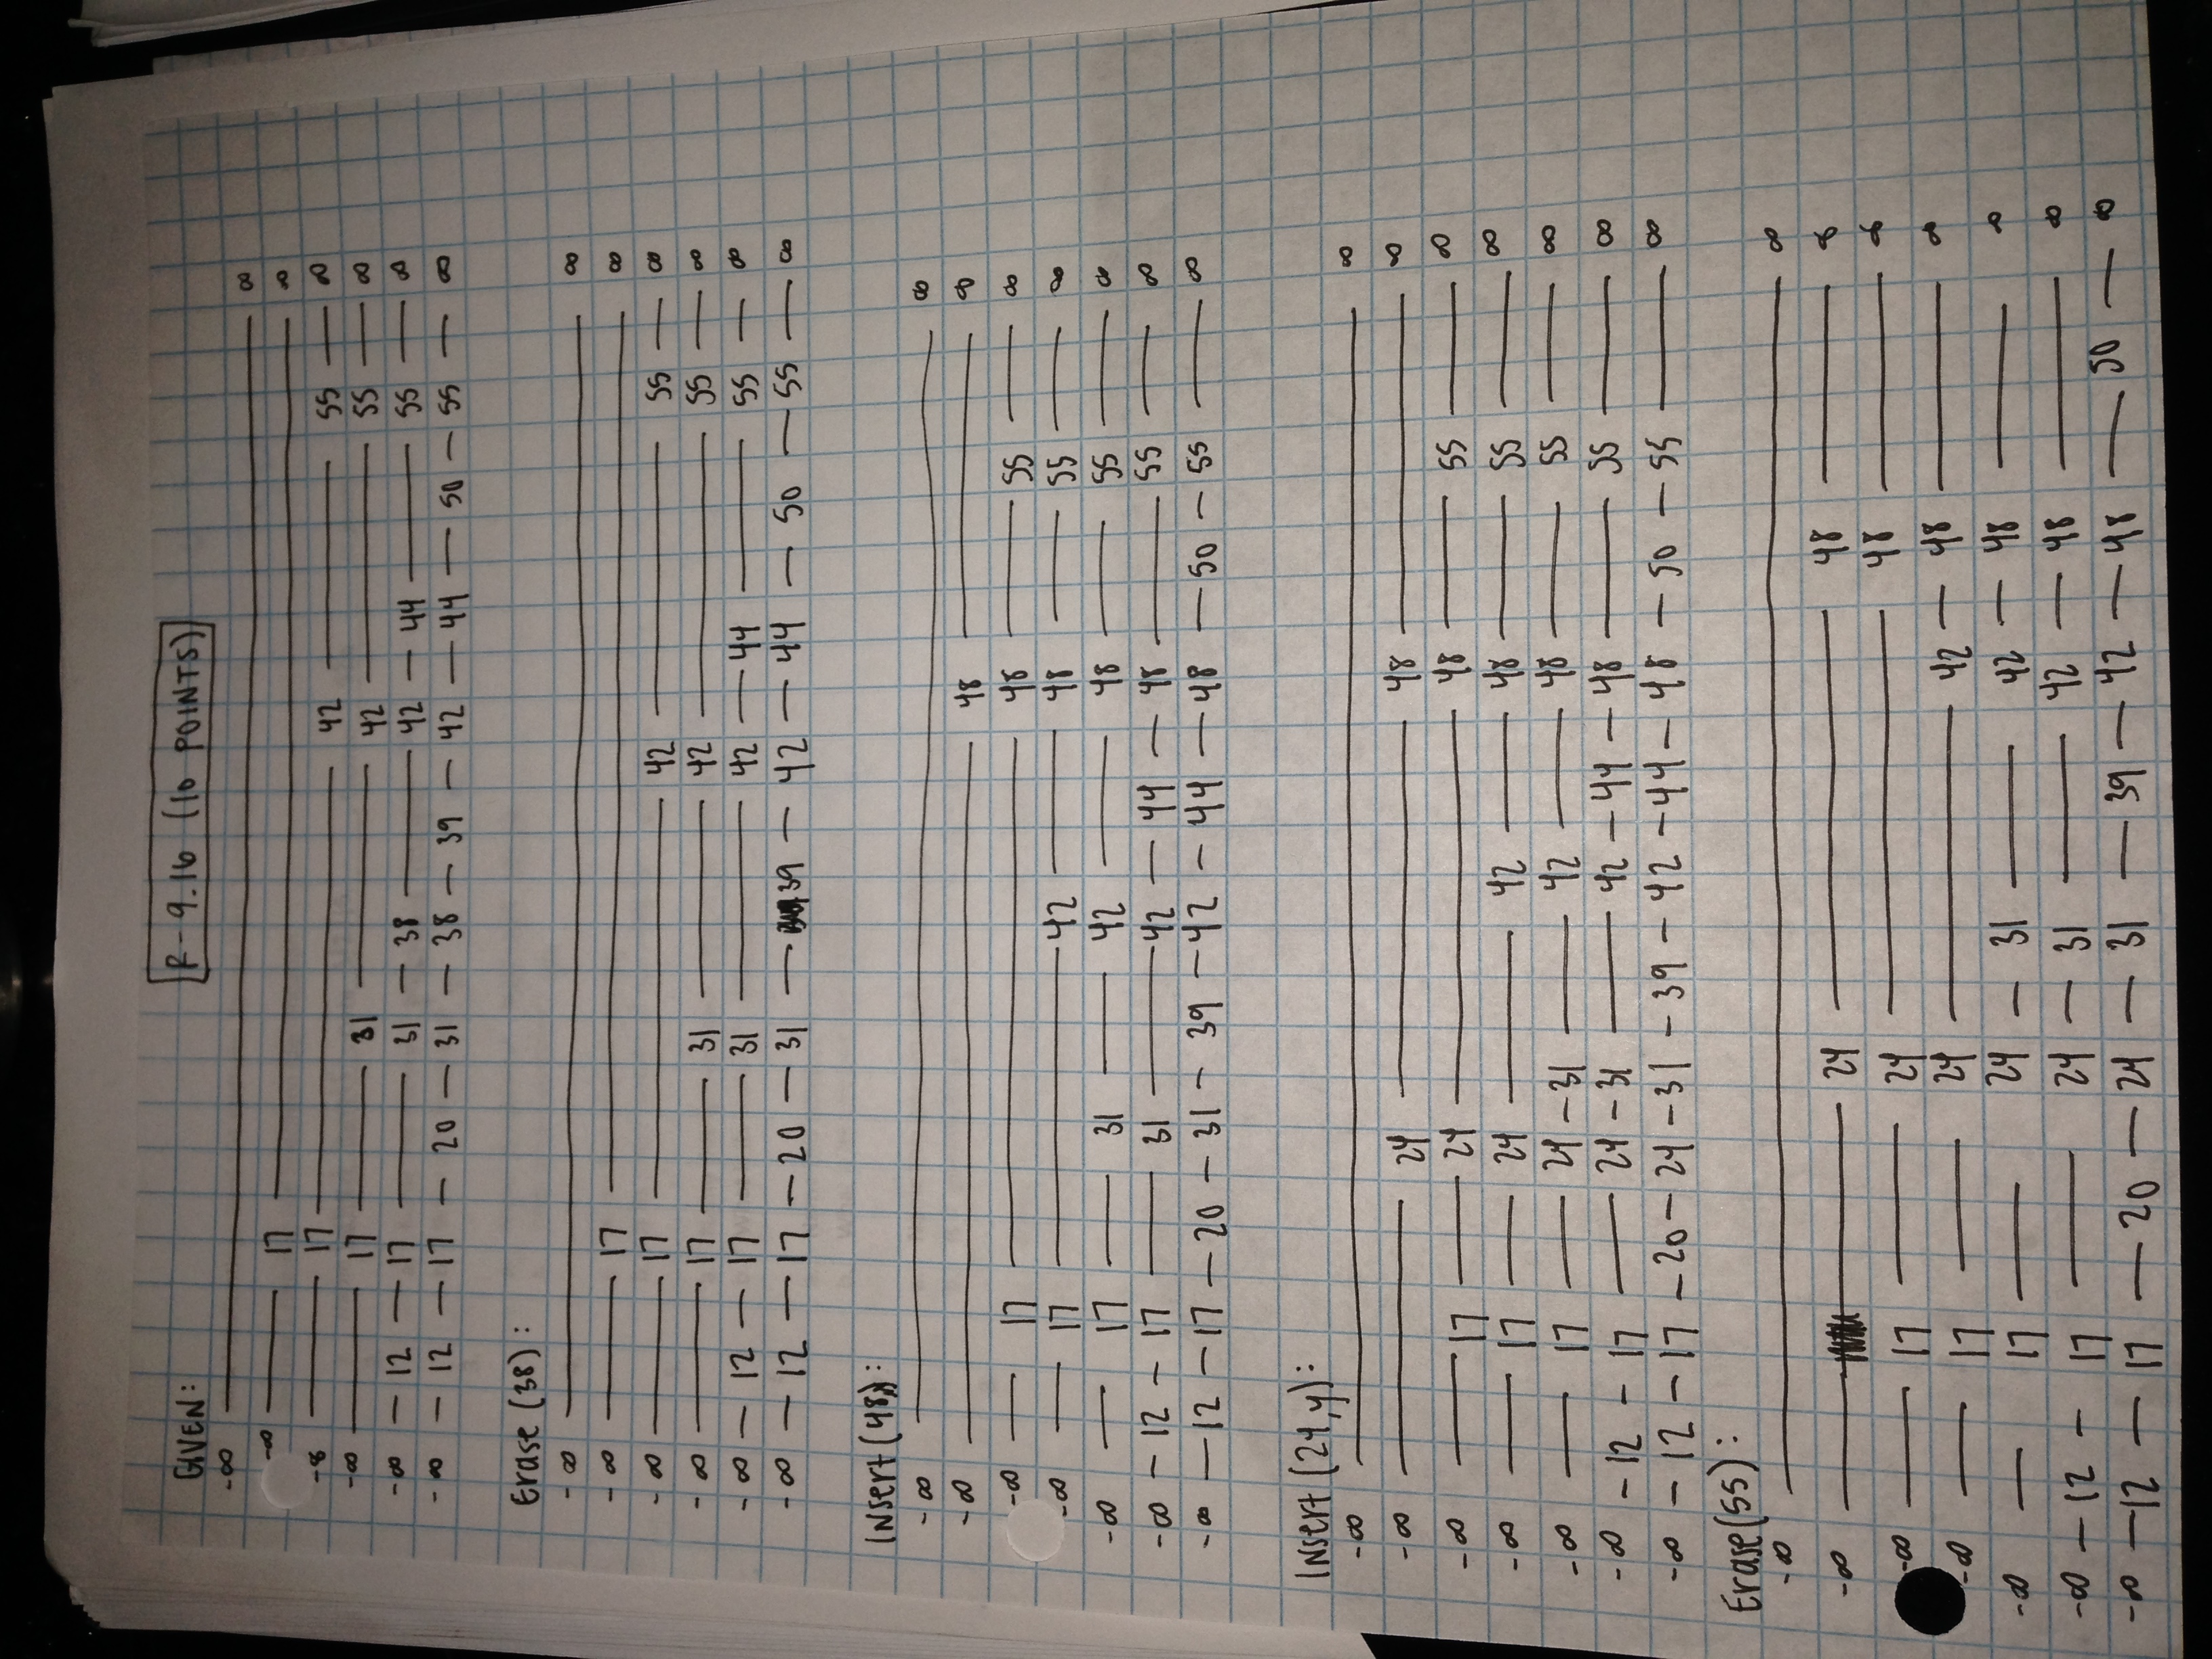 GIVEN:
R-9.16 (10 POINTS)
-∞ ——— ∞
-∞ — 17 ——— ∞
-∞ — 17 ——— 42 — 55 — ∞
-∞ — 17 — 31 — 42 — 55 — ∞
-∞ — 12 — 17 — 31 — 38 — 42 — 44 — 55 — ∞
-∞ — 12 — 17 — 20 — 31 — 38 — 39 — 42 — 44 — 50 — 55 — ∞
Erase (38):
-∞ ——— ∞
-∞ — 17 ——— ∞
-∞ — 17 — 42 — 55 — ∞
-∞ — 17 — 31 — 42 — 55 — ∞
-∞ — 12 — 17 — 31 — 42 — 44 — 55 — ∞
-∞ — 12 — 17 — 20 — 31 — 39 — 42 — 44 — 50 — 55 — ∞
Insert (48,):
-∞ ——— ∞
-∞ ——— 48 — ∞
-∞ — 17 ——— 48 — 55 — ∞
-∞ — 17 — 42 — 48 — 55 — ∞
-∞ — 17 — 31 — 42 — 48 — 55 — ∞
-∞ — 12 — 17 — 31 — 42 — 44 — 48 — 55 — ∞
-∞ — 12 — 17 — 20 — 31 — 39 — 42 — 44 — 48 — 50 — 55 — ∞
Insert (24,y):
-∞ ——— ∞
-∞ — 24 — 48 — ∞
-∞ — 17 — 24 — 48 — 55 — ∞
-∞ — 17 — 24 — 42 — 48 — 55 — ∞
-∞ — 17 — 24 — 31 — 42 — 48 — 55 — ∞
-∞ — 12 — 17 — 24 — 31 — 42 — 44 — 48 — 55 — ∞
-∞ — 12 — 17 — 20 — 24 — 31 — 39 — 42 — 44 — 48 — 50 — 55 — ∞
Erase (55):
-∞ ——— ∞
-∞ — 24 — 48 — ∞
-∞ — 17 — 24 — 48 — ∞
-∞ — 17 — 24 — 42 — 48 — ∞
-∞ — 17 — 24 — 31 — 42 — 48 — ∞
-∞ — 12 — 17 — 24 — 31 — 42 — 48 — ∞
-∞ — 12 — 17 — 20 — 24 — 31 — 39 — 42 — 48 — 50 — ∞